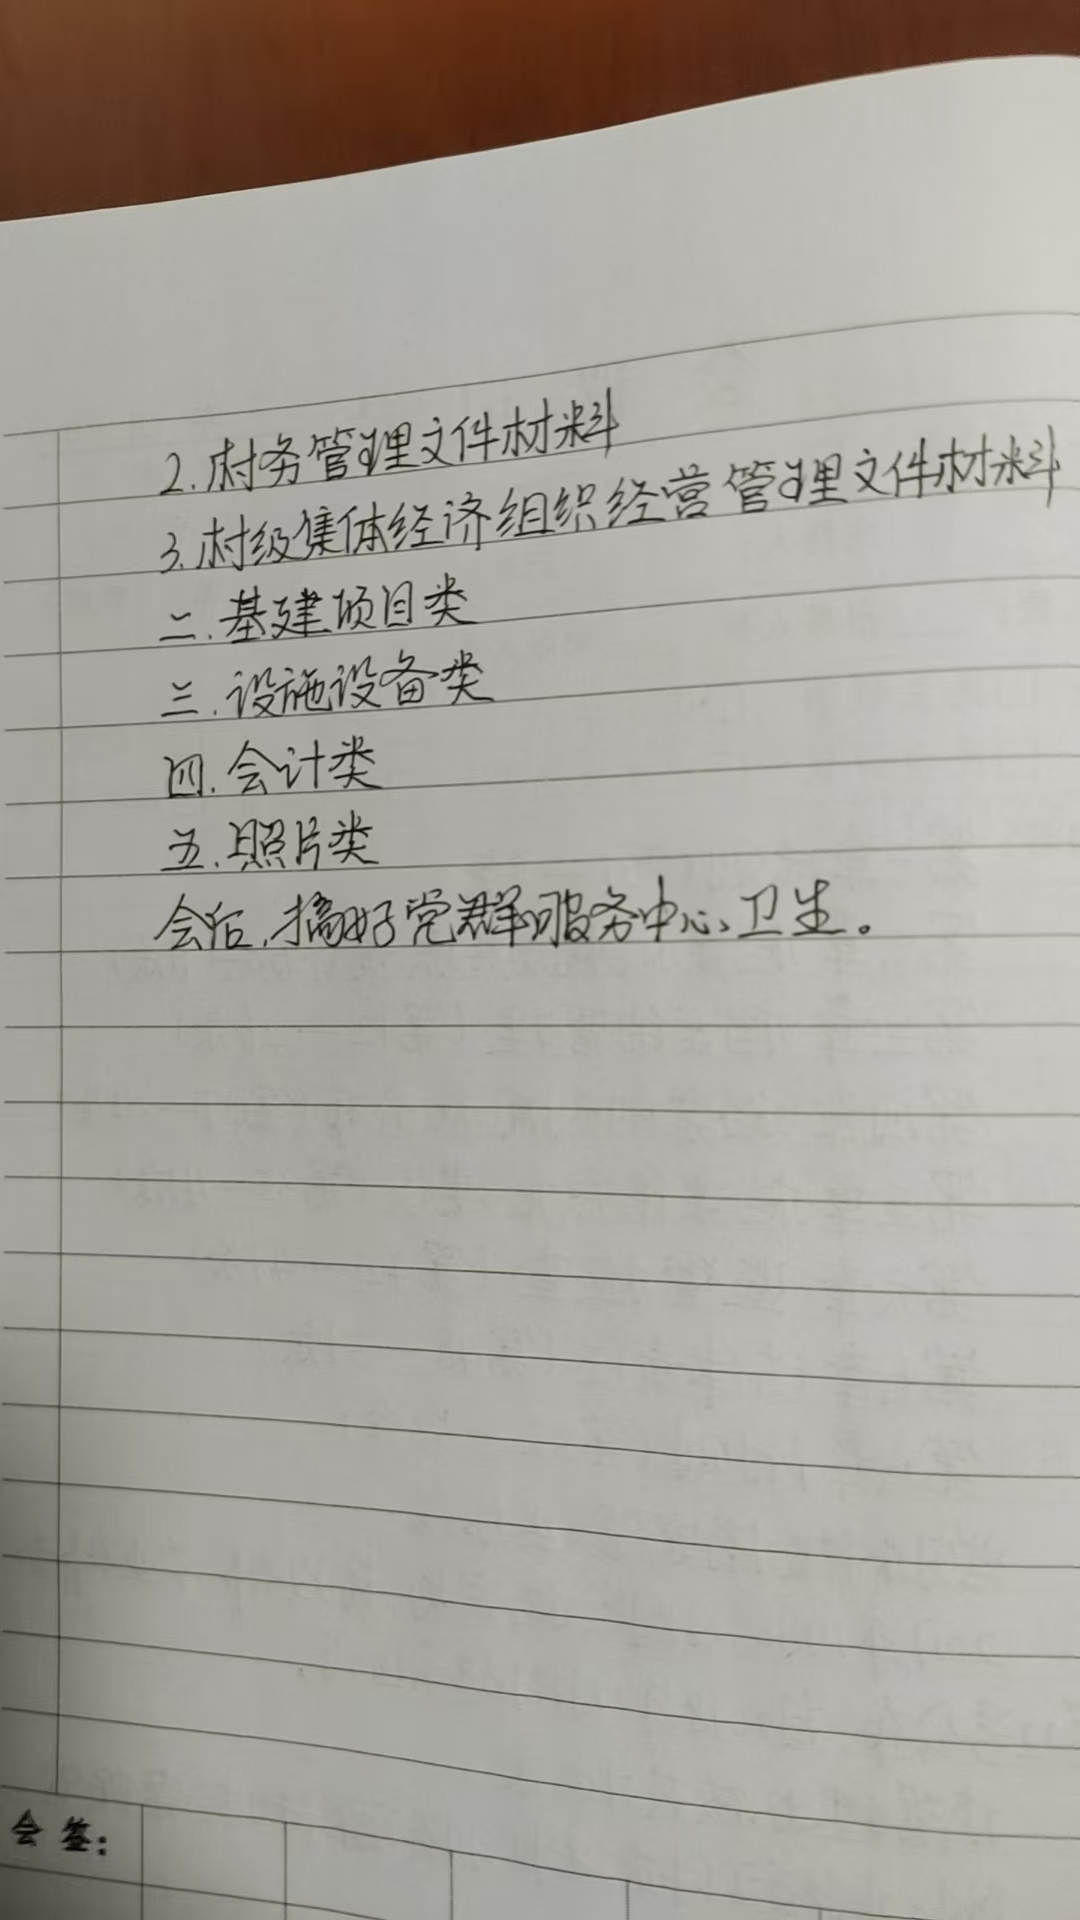 2.村务管理文件材料
3.村级集体经济组织经营管理文件材料
二.基建项目类
三.设施设备类
四.会计类
五.照片类
会后,搞好党群服务中心卫生。
会签: